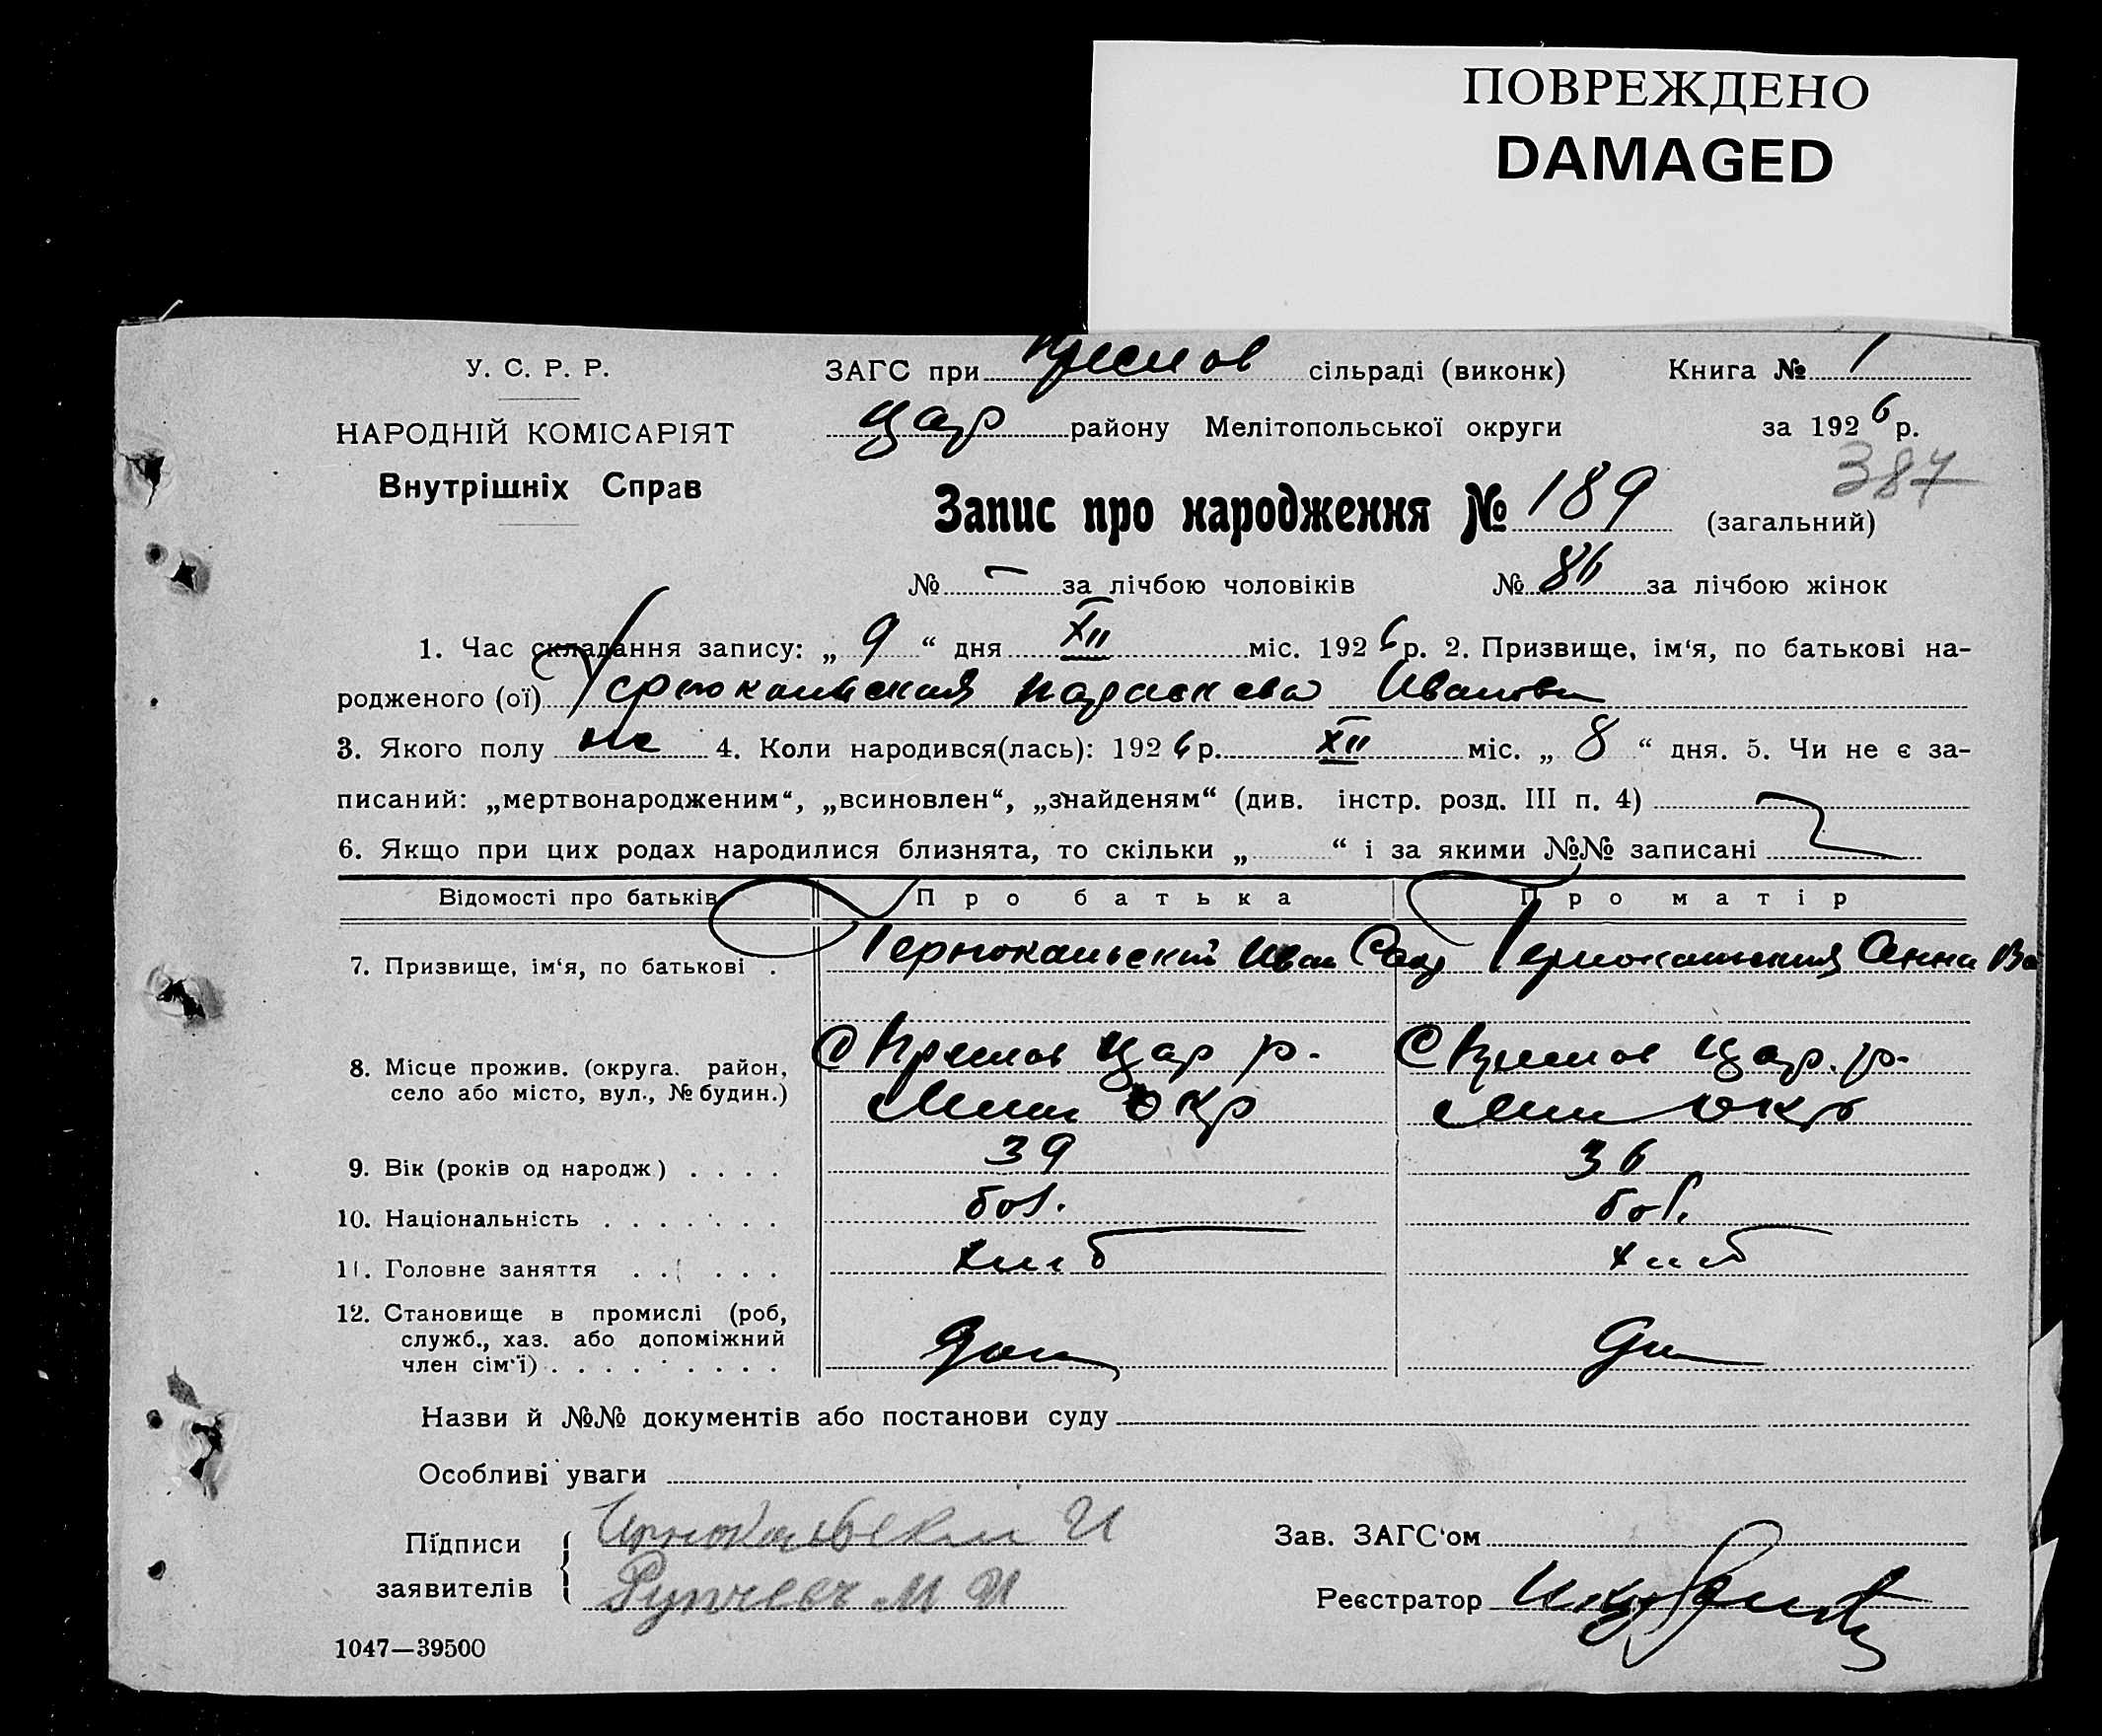 ПОВРЕЖДЕНО
DAMAGED
У. С. Р. Р.
НАРОДНІЙ КОМІСАРІЯТ
Внутрішніх Справ
ЗАГС при Преслов сільраді (виконк) Книга № 1
Цар району Мелітопольської округи за 1926 р.
387
Запис про народження № 189 (загальний)
№ — за лічбою чоловіків № 86 за лічбою жінок
1. Час складання запису: „ 9 “ дня XII міс. 1926 р. 2. Призвище, ім‘я, по батькові на-
родженого (ої) Парaскева Иванов
3. Якого полу 4. Коли народився(лась): 1926 р. XII міс. „ 8 “ дня. 5. Чи не є за-
писаний: „мертвонародженим“, „всиновлен“, „знайденям“ (див. інстр. розд. III п. 4)
6. Якщо при цих родах народилися близнята, то скільки „ “ і за якими №№ записані
Відомості про батьків Про батька Про матір
7. Призвище, ім‘я, по батькові . Иван Анна Ва
8. Місце прожив. (округа. район, село або місто, вул., № будин.) С Преслов Цар р. С Преслов Цар. р.
Мел окр Мел окр
9. Вік (років од народж.) . . . . 39 36
10. Національність . . . . . . . бол. бол.
11. Головне заняття . . . . . хліб хліб
12. Становище в промислі (роб,
служб., хаз. або допоміжний
член сім‘ї) . . . . . . . . .
Назви й №№ документів або постанови суду
Особливі уваги
Підписи И
заявителів М И
Зав. ЗАГС‘ом
Реєстратор
1047—39500